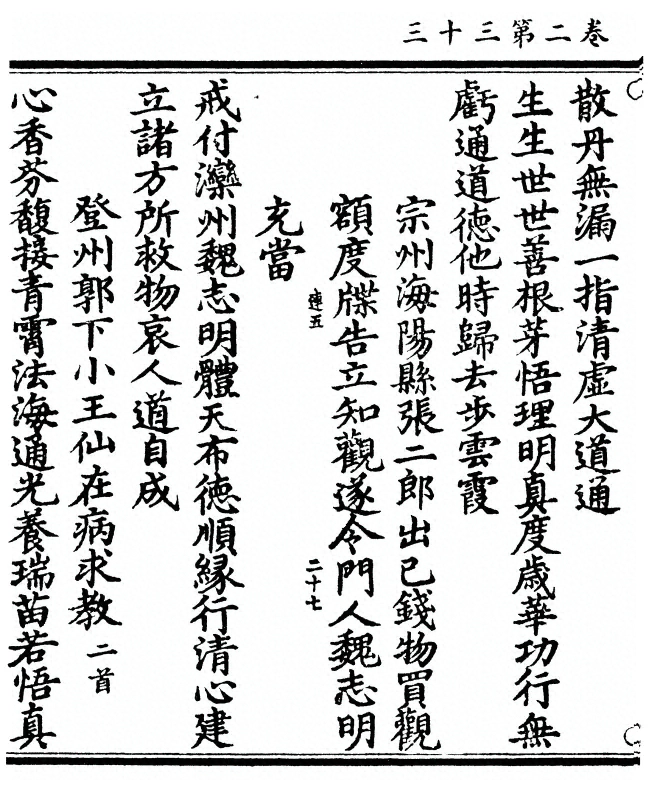 卷二第三十三
散丹無漏一指清虛大道通
生生世世善根芽悟理明真度歲華功行無
虧通道德他時歸去步雲霞
宗州海陽縣張二郎出已錢物買觀
額度牒告立知觀遂令門人魏志明
連五
二十七
充當
戒付灤州魏志明體天布德順緣行清心建
立諸方所救物哀人道自成
登州郭下小王仙在病求教二首
心香芬馥接青霄法海通光養瑞苗若悟真